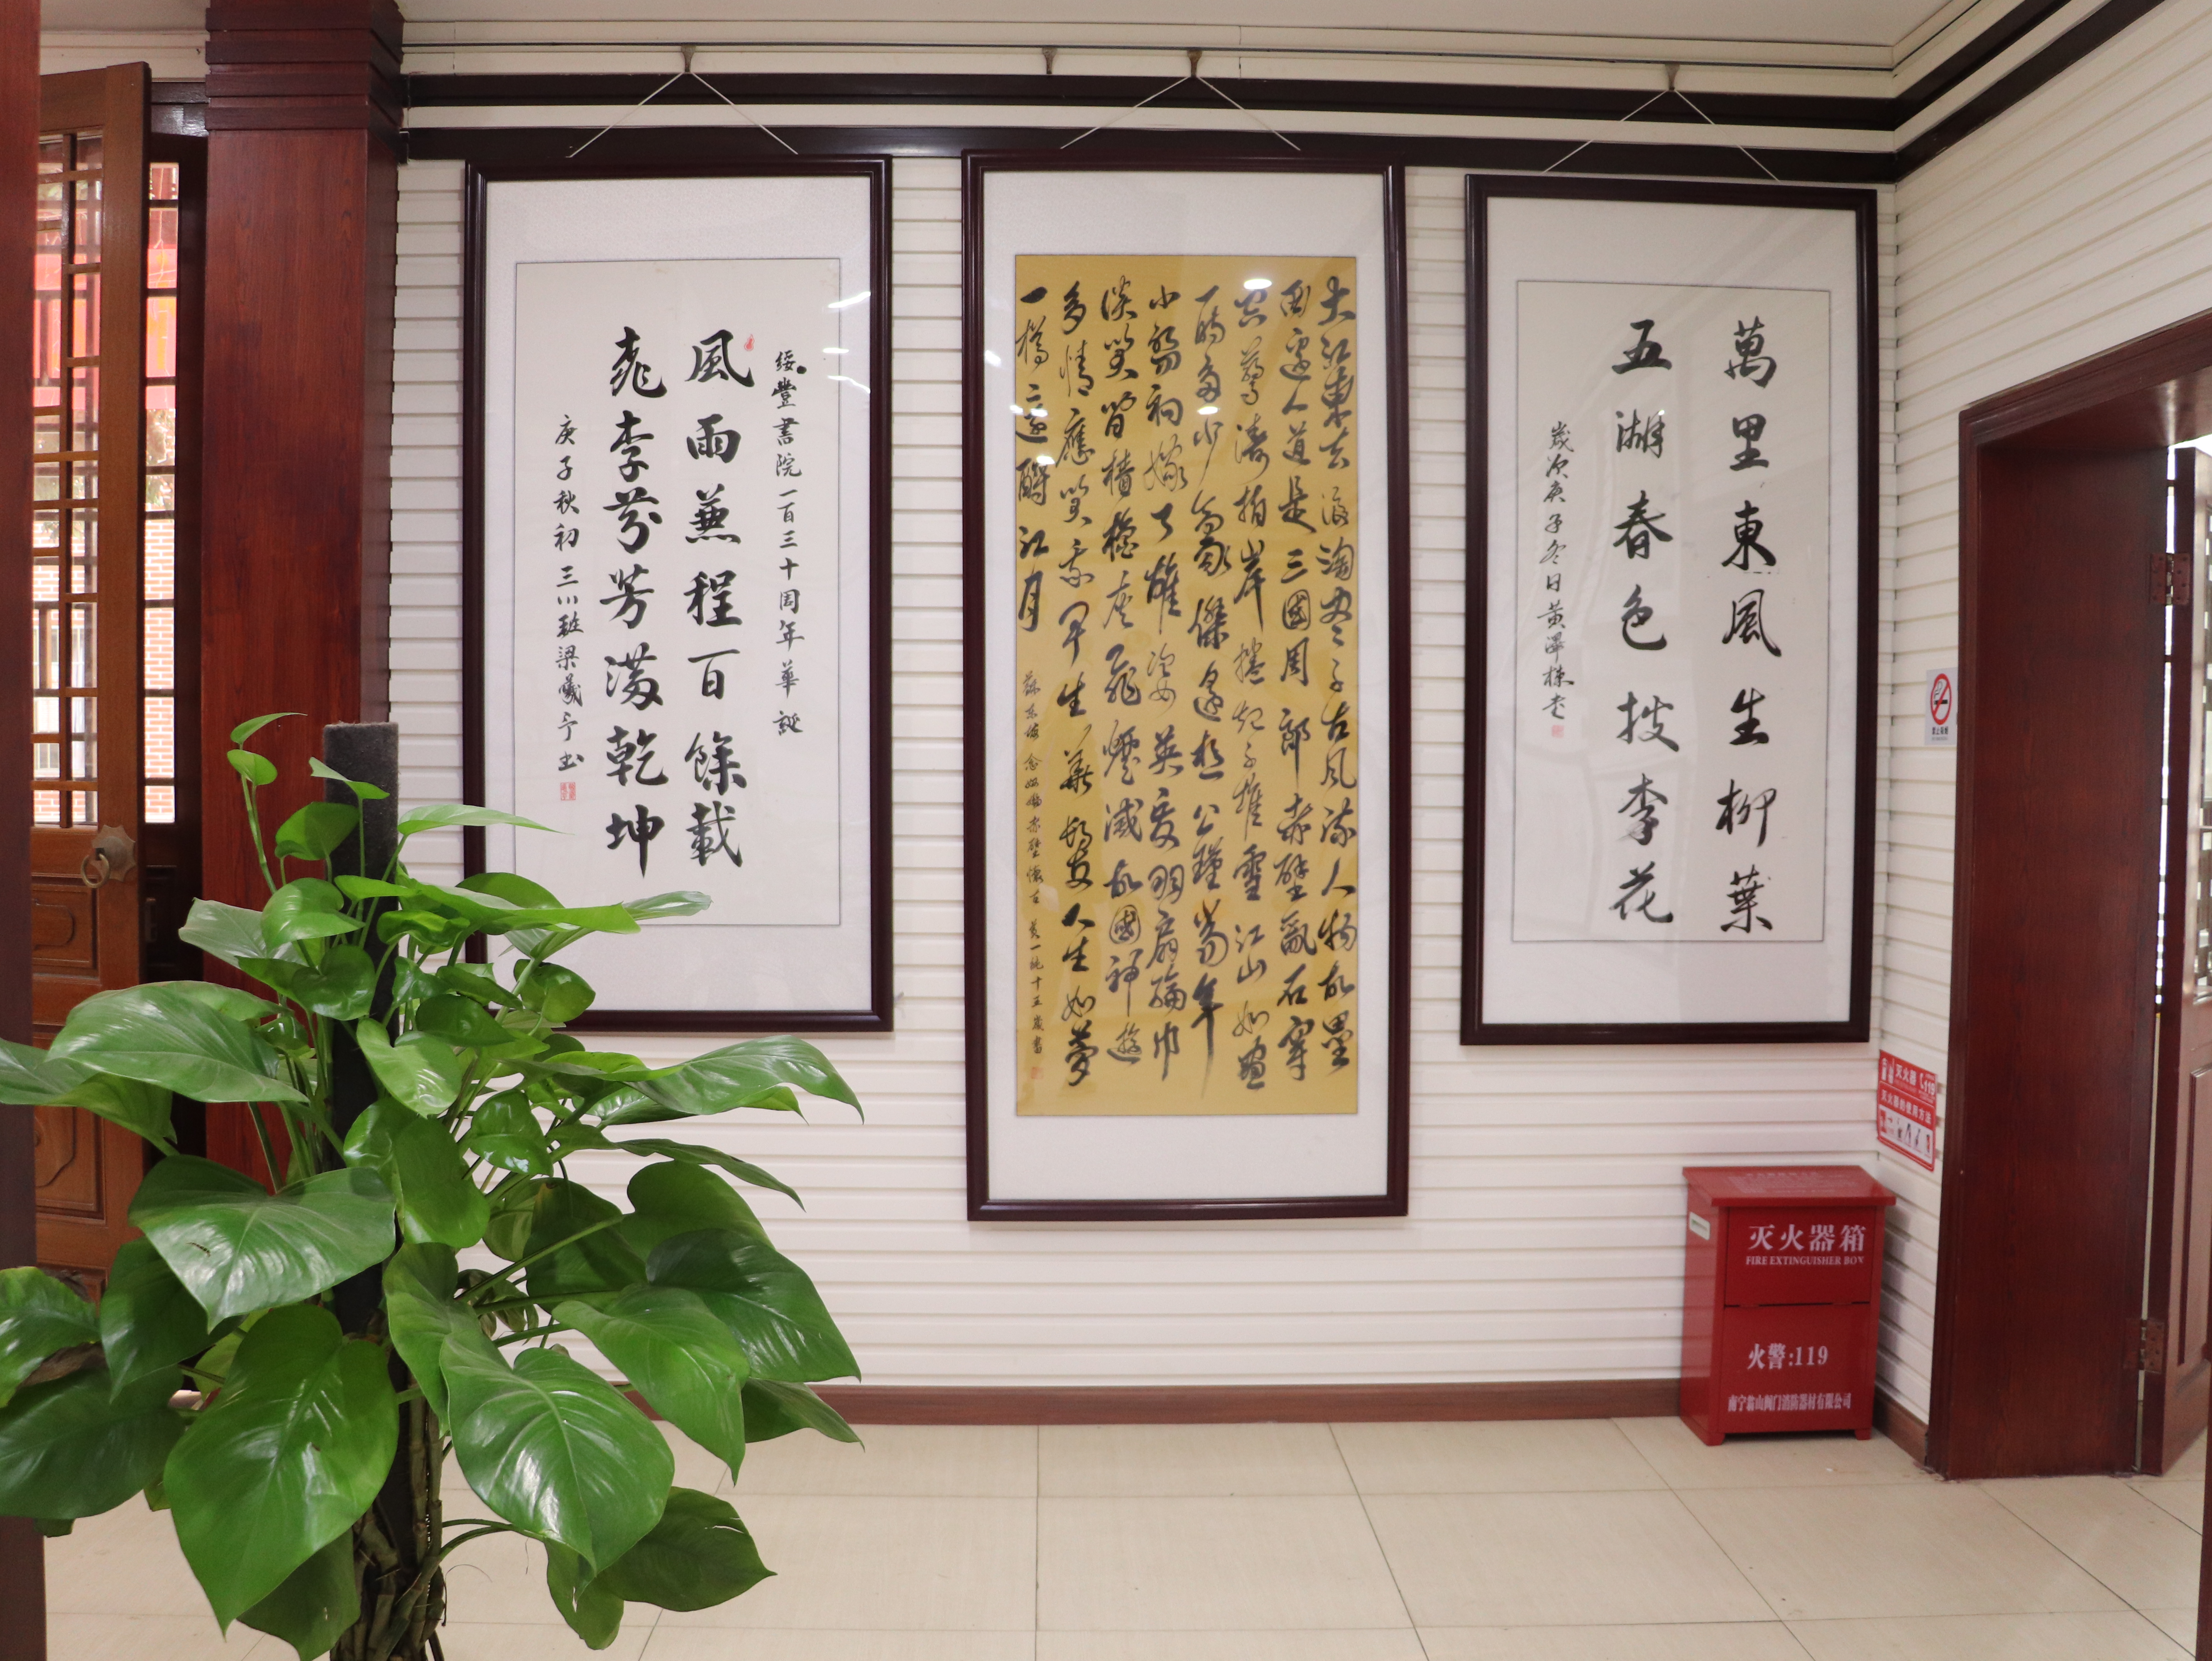 綏豐書院一百三十周年華誕
風雨兼程百餘載
桃李芬芳滿乾坤
庚子秋初 三川班梁曦予书
大江東去浪淘盡千古風流人物故壘
西邊人道是三國周郎赤壁亂石穿
空驚濤拍岸捲起千堆雪江山如畫
一時多少豪傑遙想公瑾當年
小喬初嫁了雄姿英發羽扇綸巾
淡笑間檣櫓灰飛煙滅故國神遊
多情應笑我早生華髮人生如夢
一樽還酹江月
蘇東坡念奴嬌赤壁懷古 十五歲書
萬里東風生柳葉
五湖春色披李花
歲次庚子冬日黄澤栋书
灭火器 119
灭火器的使用方法
灭火器箱
FIRE EXTINGUISHER BOX
火警:119
南宁翁山阀门消防器材有限公司